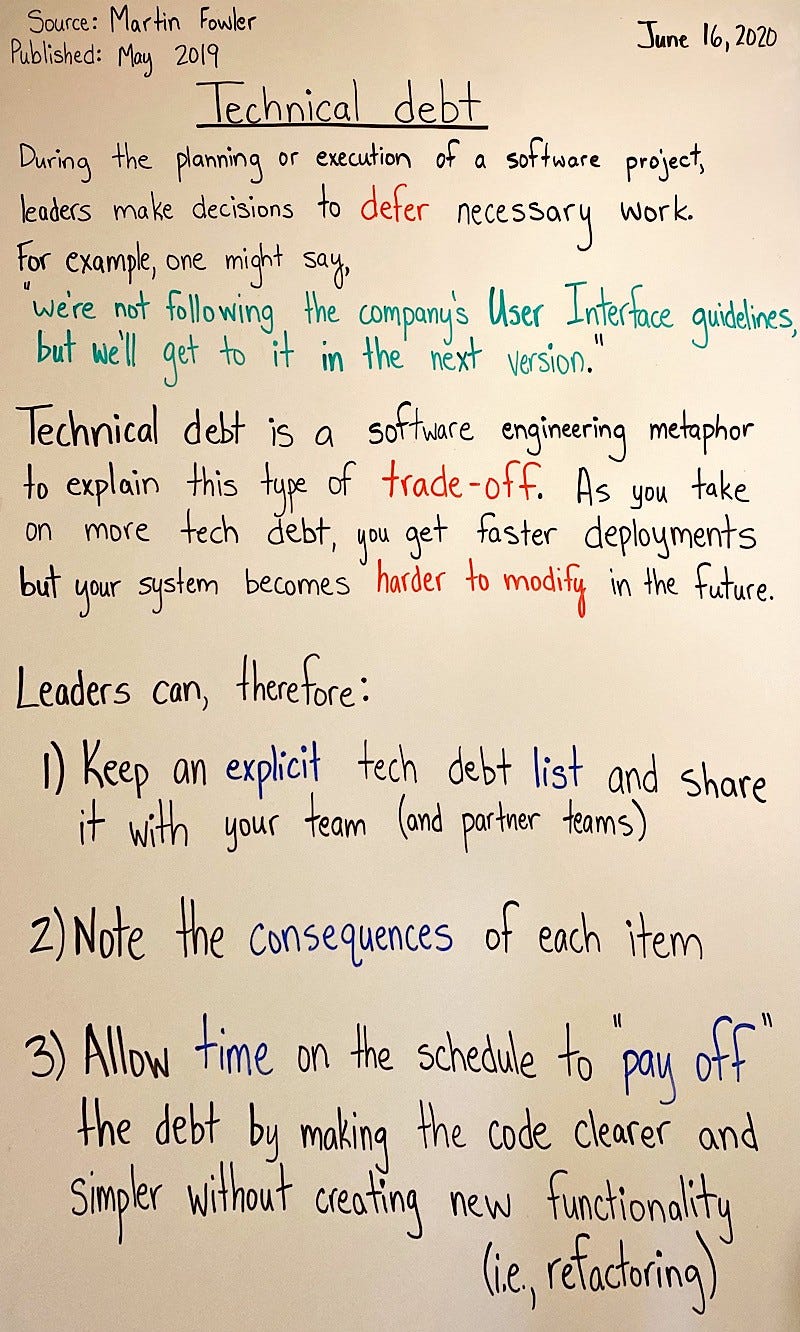 Source: Martin Fowler
Published: May 2019
June 16, 2020
Technical debt
During the planning or execution of a software project,
leaders make decisions to defer necessary work.
For example, one might say,
"we're not following the company's User Interface guidelines,
but we'll get to it in the next version."
Technical debt is a software engineering metaphor
to explain this type of trade-off. As you take
on more tech debt, you get faster deployments
but your system becomes harder to modify in the future.
Leaders can, therefore:
1) Keep an explicit tech debt list and share
it with your team (and partner teams)
2) Note the consequences of each item
3) Allow time on the schedule to "pay off"
the debt by making the code clearer and
simpler without creating new functionality
(i.e., refactoring)